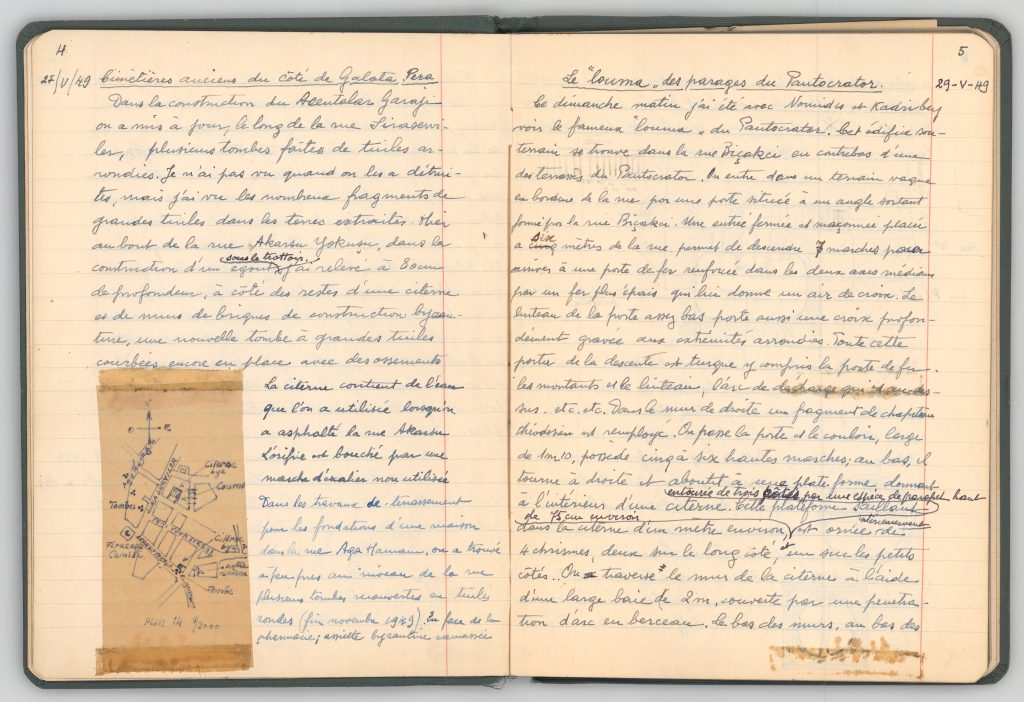 4
27/V/49 Cimetières anciens du côté de Galata, Pera
Dans la construction du Acentalar Garaji
on a mis à jour, le long de la rue Siraservi-
ler, plusieurs tombes faites de tuiles ar-
rondies. Je n'ai pas vu quand on les a détrui-
tes, mais j'ai vu les nombreux fragments de
grandes tuiles dans les terres extraites. Hier
au bout de la rue Akarsu Yokuşu, dans la
sous le trottoir
construction d'un egout, j'ai relevé à 80cm
de profondeur, à côté des restes d'une citerne
et de murs de briques de construction byzan-
tine, une nouvelle tombe à grandes tuiles
courbées encore en place avec des ossements
La citerne contient de l'eau
que l'on a utilisée lorsqu'on
a asphalté la rue Akarsu
L'orifice est bouché par une
marche d'escalier non utilisée
Dans les travaux de terrassement
pour les fondations d'une maison
dans la rue Aga Hamam, on a trouvé
à peu près au niveau de la rue
plusieurs tombes recouvertes en tuiles
rondes (fin novembre 1949). En face de la
pharmacie; assiette byzantine ramassée
Citerne
byz.
Tombes
Firuzaga
Camiik
Citerne
byz.
Tombe
PLAN 1/2000
5
Le "louma" des parages du Pantocrator. 29-V-49
Ce dimanche matin j'ai été avec Nomidis et Kadri bey
voir le fameux "louma" du Pantocrator. Cet édifice sou-
terrain se trouve dans la rue Biçakci en contrebas d'une
des terrasses du Pantocrator. On entre dans un terrain vague
en bordure de la rue par une porte située à un angle sortant
formé par la rue Biçakci. Une entrée fermée et maçonnée placée
six
a cinq mètres de la rue, permet de descendre 7 marches pour
arriver à une porte de fer renfoncée dans les deux axes médians
par un fer plus épais qui lui donne un air de croix. Le
linteau de la porte assez bas porte aussi une croix profon-
dément gravée aux extrémités arrondies. Toute cette
partie de la descente est turque y compris la porte de fer.
les montants et le linteau, l'arc de decharge qui est au des-
sus. etc. etc. Dans le mur de droite un fragment de chapiteau
théodosien est remployé. On passe la porte et le couloir, large
de 1m10, possède cinq à six hautes marches; au bas, il
tourne à droite et aboutit à une plate forme, donnant
entourée de trois côtés par une espèce de parapet haut
à l'intérieur d'une citerne. Cette plateforme saillant
de 15cm environ
dans la citerne d'un mètre environ, est ornée de
4 chrismes, deux sur le long côté, et un sur les petits
côtés. On traverse le mur de la citerne à l'aide
d'une large baie de 2m, couverte par une penetra-
tion d'arc en berceau. Le bas des murs, au bas des